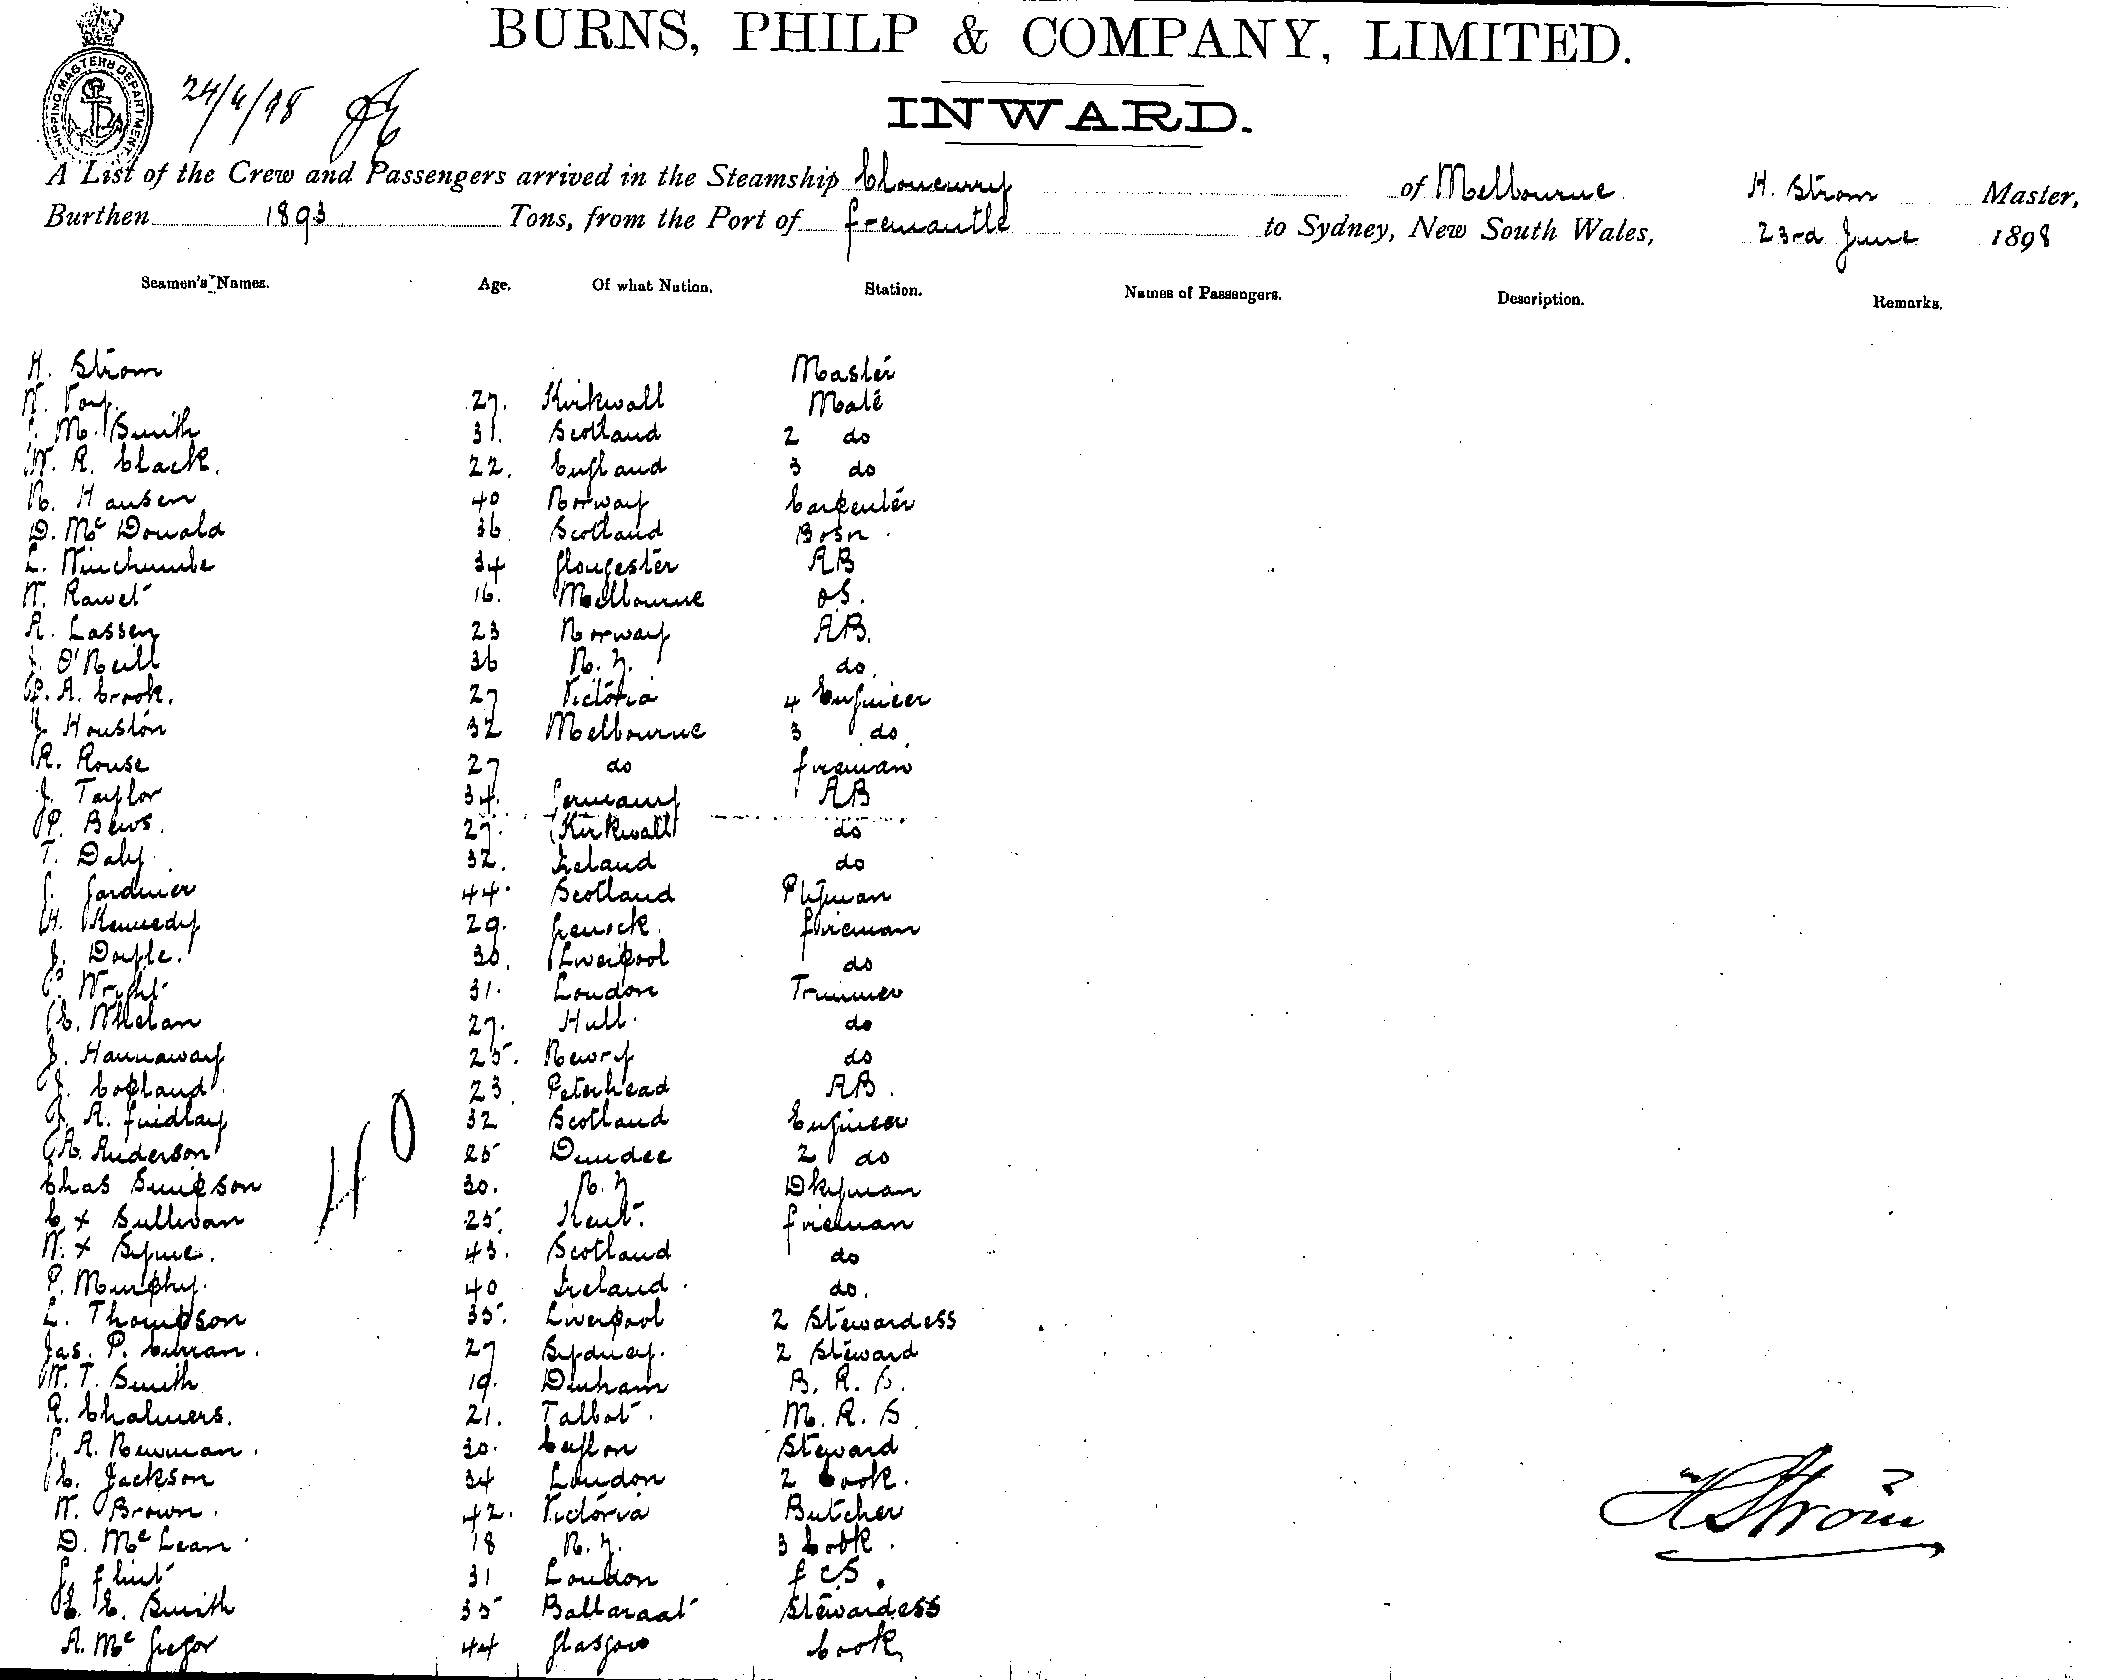 BURNS, PHILP & COMPANY, LIMITED.
SHIPPING MASTERS DEPARTMENT
24/6/98
INWARD.
A List of the Crew and Passengers arrived in the Steamship Cloncurry of Melbourne H. Strom Master,
Burthen 1893 Tons, from the Port of Fremantle to Sydney, New South Wales, 23rd June 1898
Seamen's Names. Age. Of what Nation. Station. Names of Passengers. Description. Remarks.
H. Strom Master
27. Kirkwall Mate
M. Smith 31. Scotland 2 do
W. R. Clack. 22. England 3 do
N. Hansen 40 Norway Carpenter
D. Mc Donald 36 Scotland Bosn.
L. Winchumbe 34 Gloucester AB
W. Rawet 16. Melbourne OS.
A. Lassen 23 Norway AB.
J. O'Neill 36 N. Z. do.
P. A. Crook. 27 Victoria 4 Engineer
J. Houston 32 Melbourne 3 do.
R. Rouse 27 do fireman
J. Taylor 34. Germany AB
P. Bews. 27. Kirkwall do
T. Daly. 32. Ireland do
J. Gardiner 44. Scotland
H. Kennedy 29. Greenock. fireman
J. Doyle. 30. Liverpool do
P. Wright 31. London Trimmer
C. Whelan 27. Hull. do
J. Hannaway 25. Newry do
J. Copland. 23. Peterhead AB.
J. A. Findlay 32 Scotland Engineer
A. Anderson 25 Dundee 2 do
Chas Simpson 30. N. Z Dkyman
C x Sullivan 25. Kent. fireman
W. x Syme. 43. Scotland do
P. Murphy. 40 Ireland. do.
L. Thompson 35. Liverpool 2 Stewardess
Jas. P. Curran. 27 Sydney. 2 Steward
W. T. Smith 19. Durham B. R. S.
R. Chalmers. 21. Talbot. M. R. S
J. A. Newman. 30. Ceylon Steward
C. Jackson 34 London 2 Cook.
W. Brown. 42. Victoria Butcher
D. Mc Lean 18 N. Z. 3 Cook.
J. Flint 31 London f c S.
E. E. Smith 35 Ballaraat Stewardess
A. Mc Gregor 44 Glasgow Cook
40
H Strom